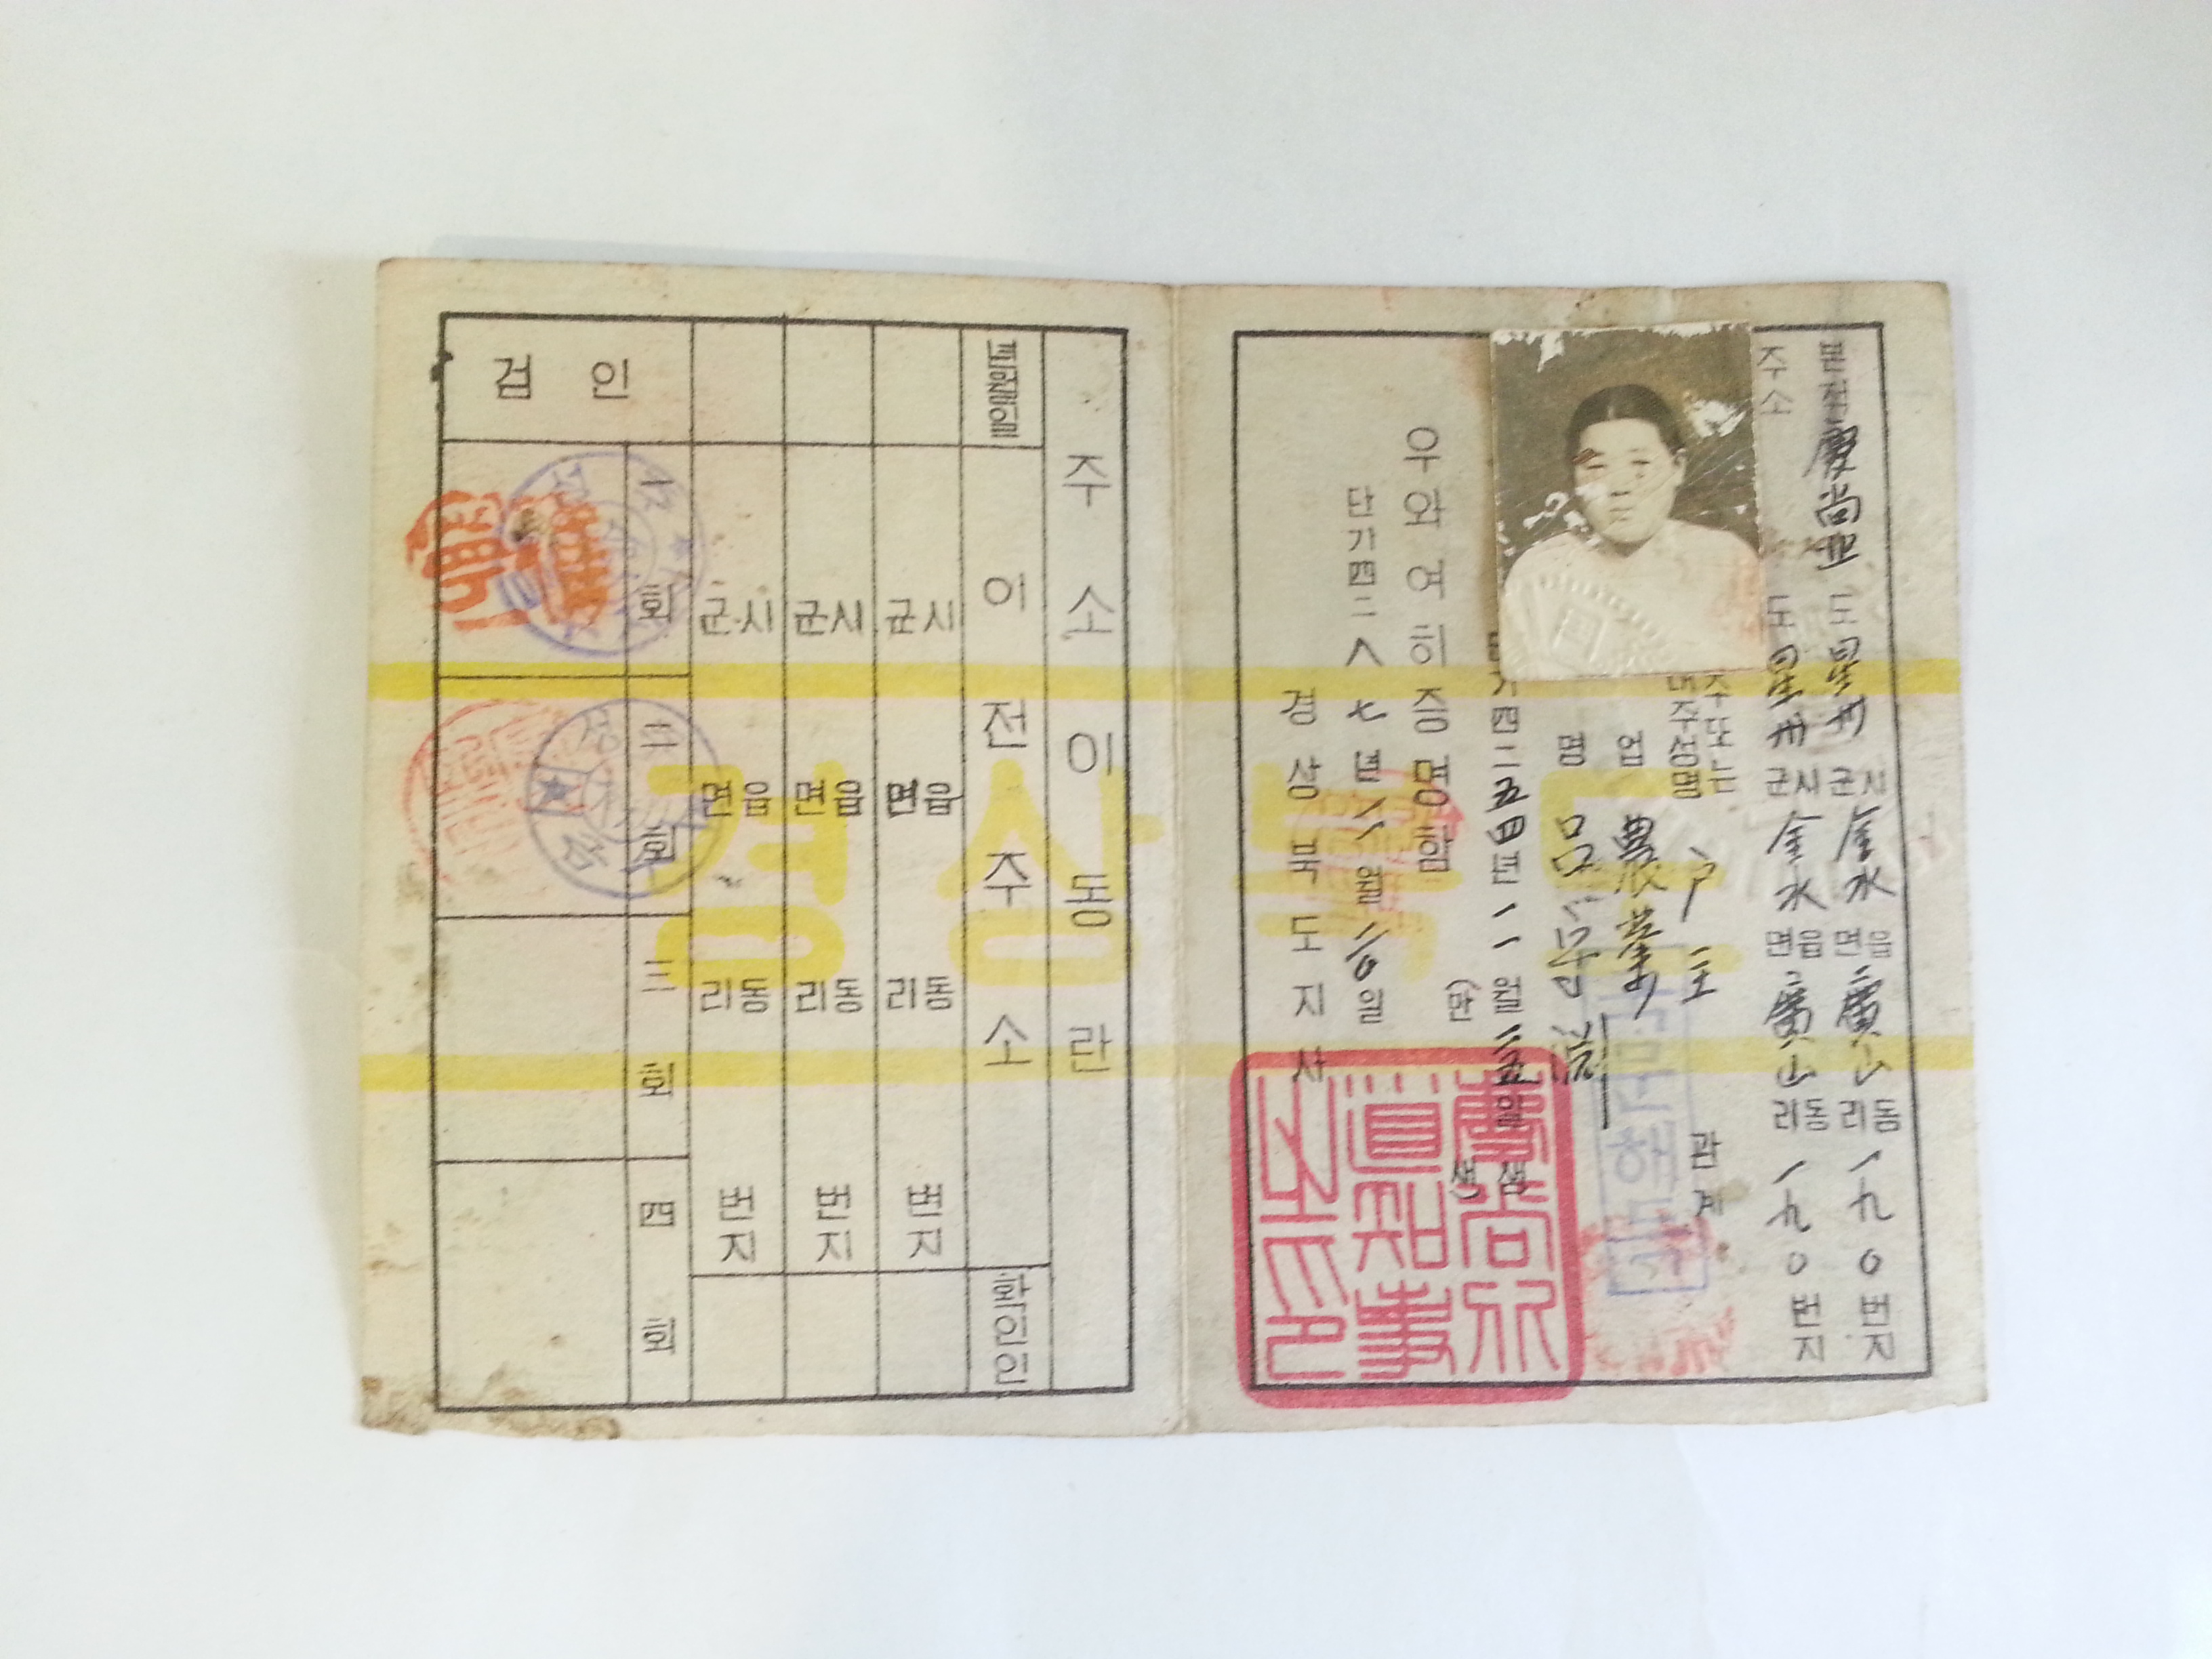 본적 慶尚北 도 星州 시군 金水 읍면 廣山 동리 一九0 번지
주소 도 星州 시군 金水 읍면 廣山 동리 一九0 번지
주또는
주성명 户主 관계
업 農業
명 呂
四二五四년 一一월 일 생
생
우와 여히 증명함
단기四二八七년 월 일
경상북도지사
慶尚北
道知事
之印
주소이동란
이전주소 확인인
시군 읍면 동리 번지
시군 읍면 동리 번지
시군 읍면 동리 번지
검인 一회 二회 三회 四회
경상북도